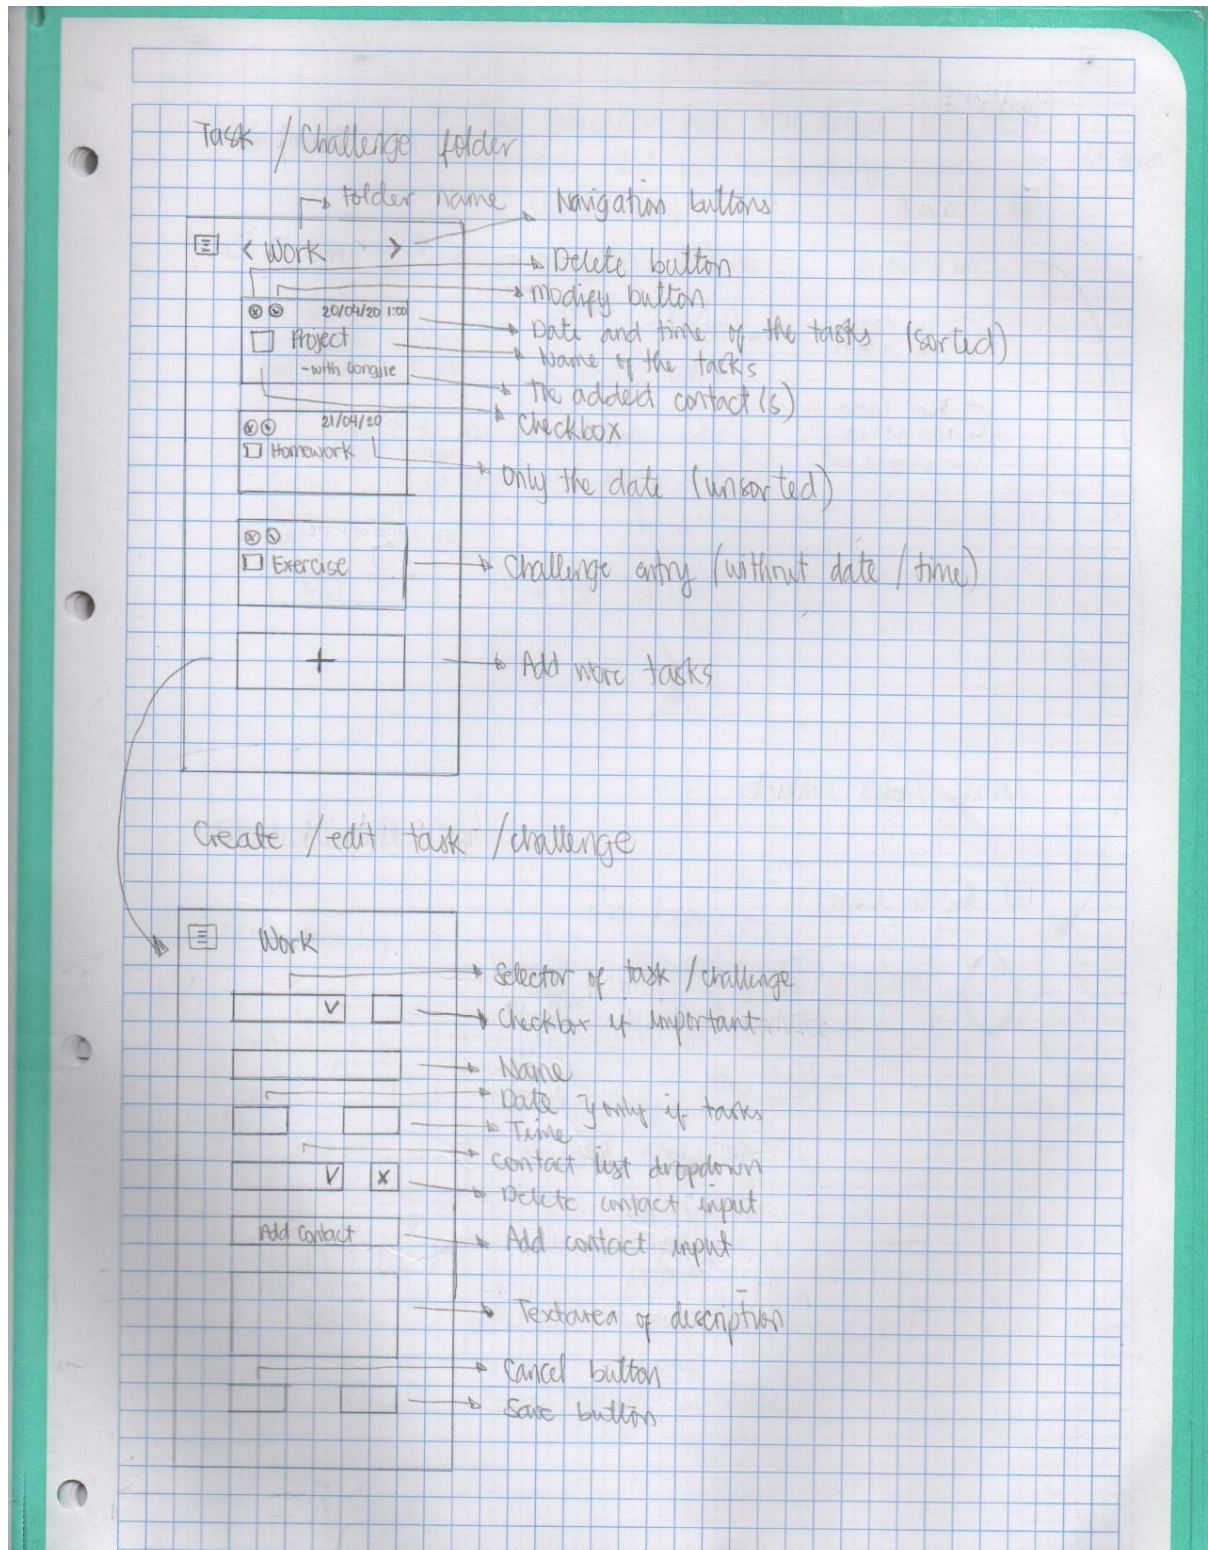 Task / Challenge folder
Folder name Navigation buttons
< Work >
Delete button
Modify button
20/04/20 1:00
Date and time of the tasks (sorted)
Project
Name of the tasks
-with
The added contact(s)
Checkbox
21/04/20
Homework
Only the date (unsorted)
Exercise
Challenge entry (without date / time)
+
Add more tasks
Create / edit task / challenge
Work
Selector of task / challenge
V
Checkbox if important
Name
Date } only if tasks
Time
Contact list dropdown
V X
Delete contact input
Add Contact
Add contact input
Textarea of description
Cancel button
Save button